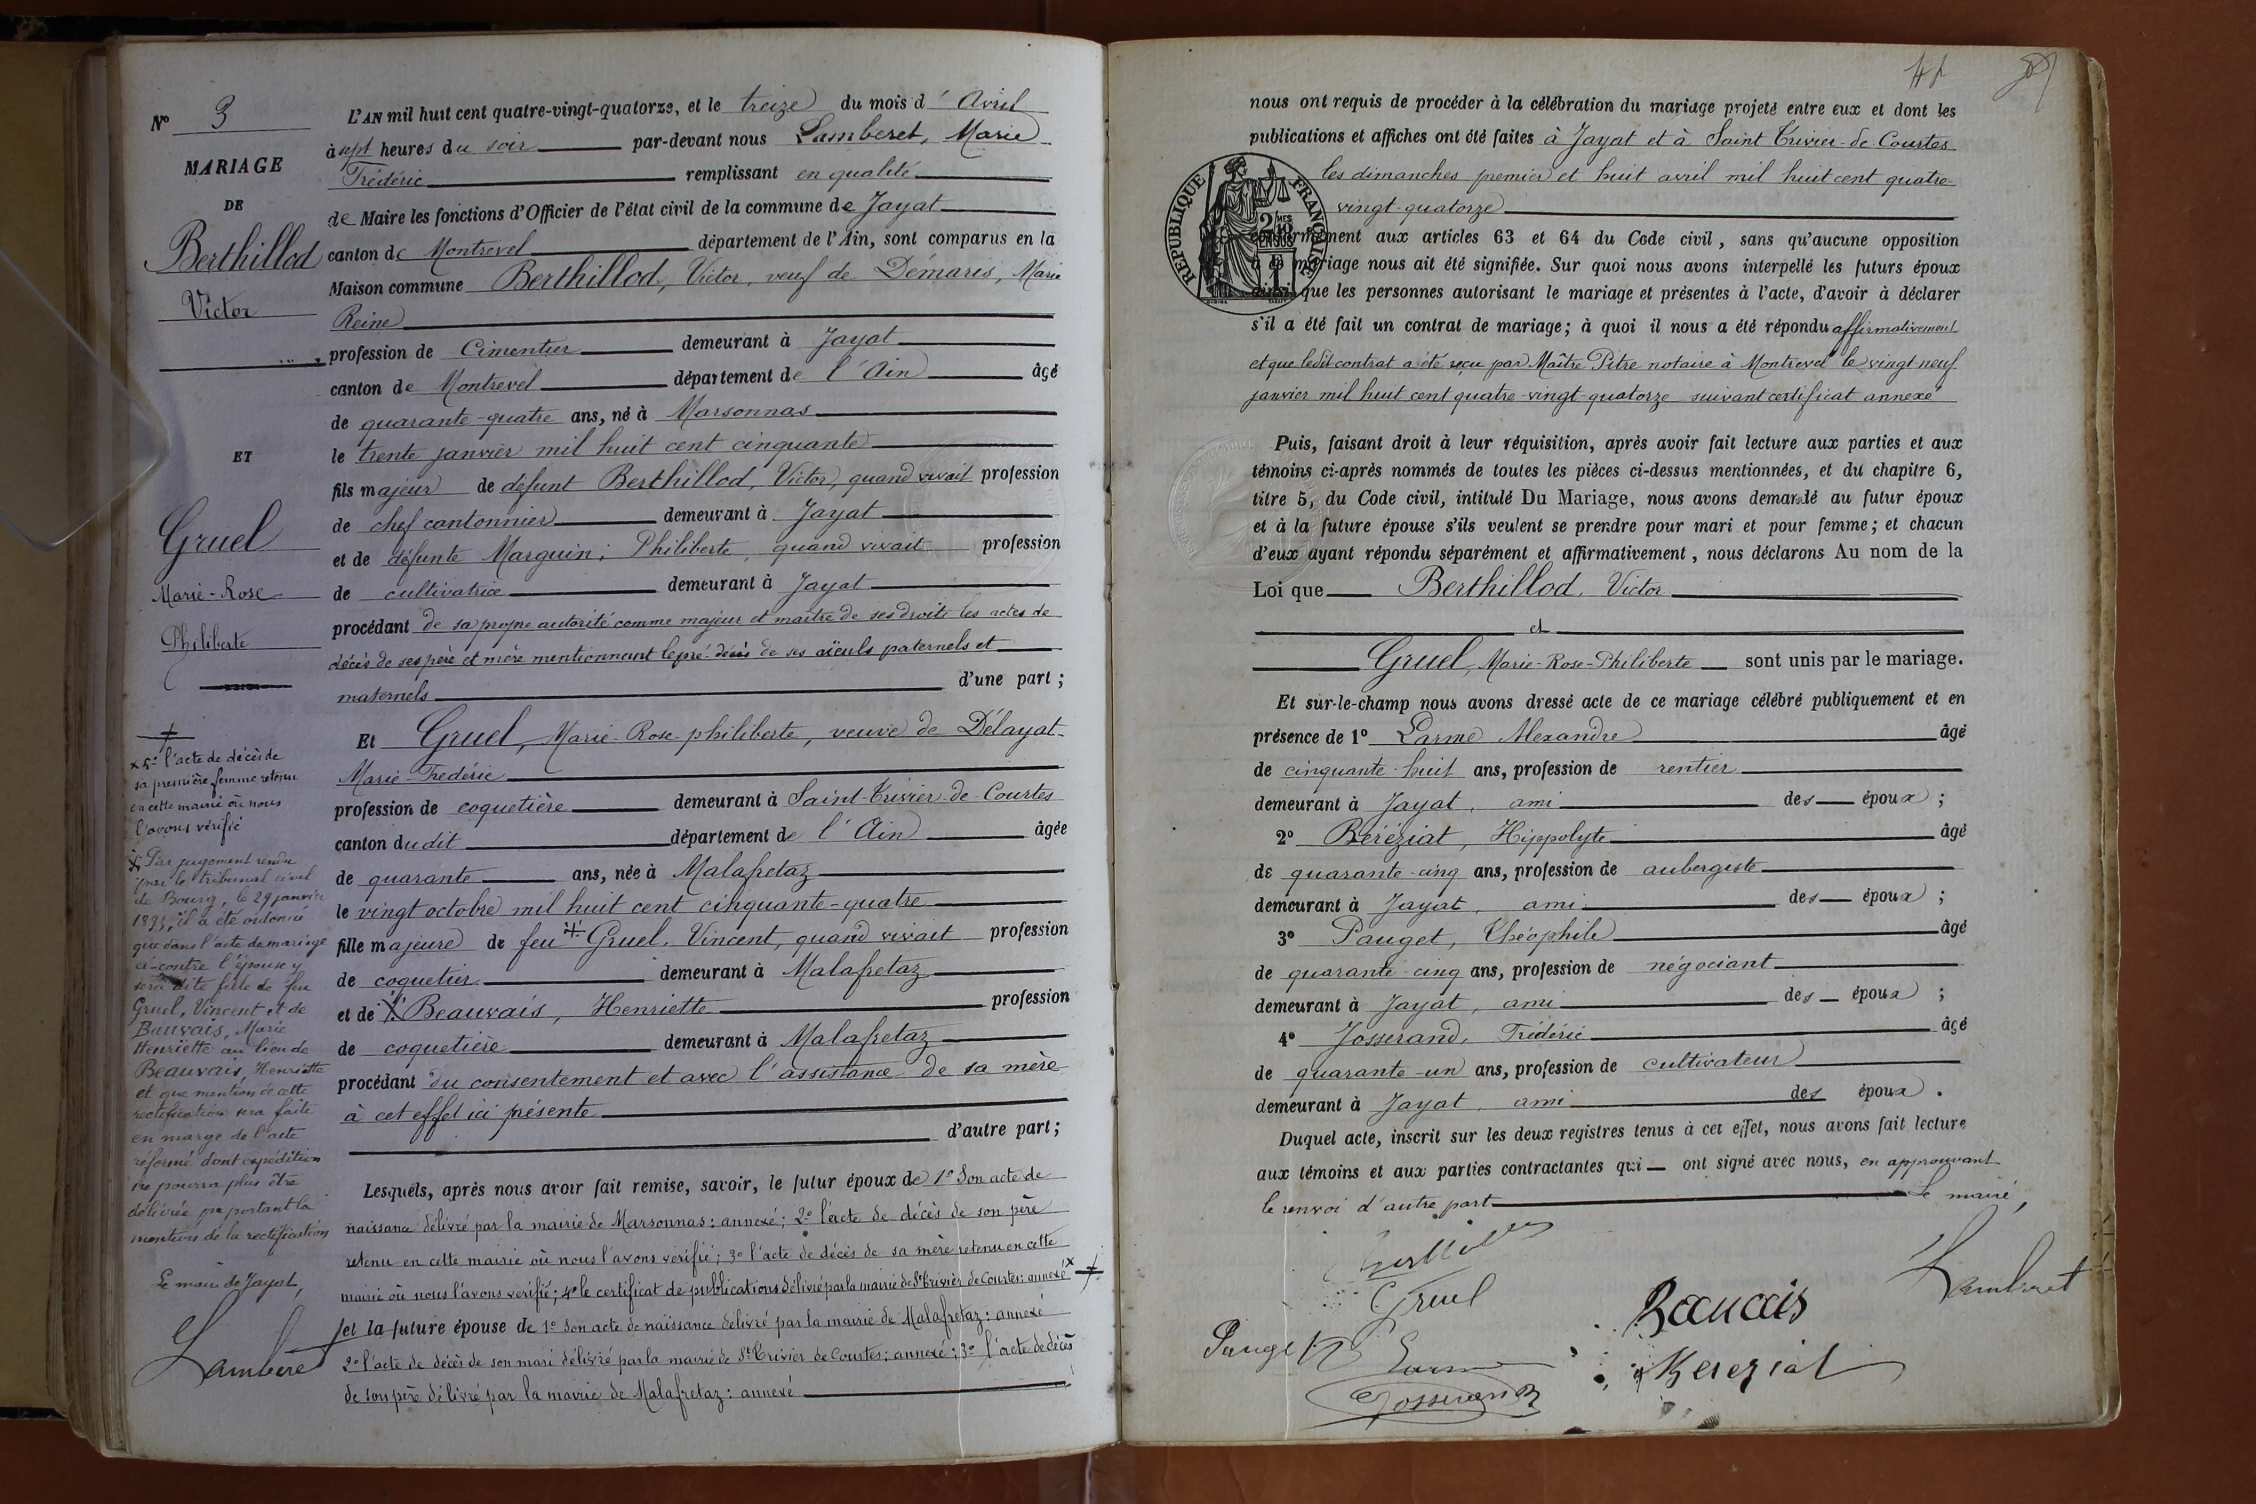 N° 3
MARIAGE
DE
Berthillod
Victor
ET
Gruel
Marie-Rose
Philiberte
x 5° l'acte de décès de
sa première femme retenu
en cette mairie où nous
l'avons vérifié
Par jugement rendu
par le tribunal civil
de Bourg, le 29 janvier
il a été ordonné
que dans l'acte de mariage
ci-contre l'épouse y
sera dite fille de feu
Gruel, Vincent et de
Bauvais, Marie
Henriette au lieu de
Beauvais, Henriette
et que mention de cette
rectification sera faite
en marge de l'acte
réformé dont expédition
ne pourra plus être
délivrée portant la
mention de la rectification
Le maire de Jayat,
Lamberet
L'AN mil huit cent quatre-vingt-quatorze, et le treize du mois d'Avril
à sept heures du soir par-devant nous Lamberet, Marie
Frédéric remplissant en qualité
de Maire les fonctions d'Officier de l'état civil de la commune de Jayat
canton de Montrevel département de l'Ain, sont comparus en la
Maison commune Berthillod, Victor, veuf de Démaris, Marie
Reine
profession de Cimentier demeurant à Jayat
canton de Montrevel département de l'Ain âgé
de quarante-quatre ans, né à Marsonnas
le trente janvier mil huit cent cinquante
fils majeur de défunt Berthillod, Victor, quand vivait profession
de chef cantonnier demeurant à Jayat
et de défunte Marguin, Philiberte, quand vivait profession
de cultivatrice demeurant à Jayat
procédant de sa propre autorité comme majeur et maître de ses droits les actes de
décès de ses père et mère mentionnant le pré-décès de ses aïeuls paternels et
maternels d'une part ;
Et Gruel, Marie-Rose-philiberte, veuve de Délayat
Marie-Frédéric
profession de coquetière demeurant à Saint-Trivier-de-Courtes
canton dudit département de l'Ain âgée
de quarante ans, née à Malafretaz
le vingt octobre mil huit cent cinquante-quatre
fille majeure de feu Gruel, Vincent, quand vivait profession
de coquetier demeurant à Malafretaz
et de Beauvais, Henriette profession
de coquetière demeurant à Malafretaz
procédant du consentement et avec l'assistance de sa mère
à cet effet ici présente
d'autre part ;
Lesquels, après nous avoir fait remise, savoir, le futur époux de 1° Son acte de
naissance délivré par la mairie de Marsonnas : annexé ; 2° l'acte de décès de son père
retenu en cette mairie où nous l'avons vérifié ; 3° l'acte de décès de sa mère retenu en cette
mairie où nous l'avons vérifié ; 4° le certificat de publications délivré par la mairie de St Trivier de Courtes : annexé x
et la future épouse de 1° Son acte de naissance délivré par la mairie de Malafretaz : annexé
2° l'acte de décès de son mari délivré par la mairie de St Trivier de Courtes : annexé ; 3° l'acte de décès
de son père délivré par la mairie de Malafretaz : annexé
nous ont requis de procéder à la célébration du mariage projeté entre eux et dont les
publications et affiches ont été faites à Jayat et à Saint Trivier-de-Courtes
les dimanches premier et huit avril mil huit cent quatre-
vingt-quatorze
RÉPUBLIQUE FRANÇAISE
conformément aux articles 63 et 64 du Code civil, sans qu'aucune opposition
à ce mariage nous ait été signifiée. Sur quoi nous avons interpellé les futurs époux
ainsi que les personnes autorisant le mariage et présentes à l'acte, d'avoir à déclarer
s'il a été fait un contrat de mariage ; à quoi il nous a été répondu affirmativement
et que ledit contrat a été reçu par Maître Pitre notaire à Montrevel le vingt neuf
janvier mil huit cent quatre-vingt-quatorze suivant certificat annexé
Puis, faisant droit à leur réquisition, après avoir fait lecture aux parties et aux
témoins ci-après nommés de toutes les pièces ci-dessus mentionnées, et du chapitre 6,
titre 5, du Code civil, intitulé Du Mariage, nous avons demandé au futur époux
et à la future épouse s'ils veulent se prendre pour mari et pour femme ; et chacun
d'eux ayant répondu séparément et affirmativement, nous déclarons Au nom de la
Loi que Berthillod, Victor
et
Gruel, Marie-Rose-Philiberte sont unis par le mariage.
Et sur-le-champ nous avons dressé acte de ce mariage célébré publiquement et en
présence de 1° Larme Alexandre âgé
de cinquante-huit ans, profession de rentier
demeurant à Jayat, ami des époux ;
2° Beréziat, Hippolyte âgé
de quarante-cinq ans, profession de aubergiste
demeurant à Jayat, ami des époux ;
3° Pauget, Théophile âgé
de quarante-cinq ans, profession de négociant
demeurant à Jayat, ami des époux ;
4° Josserand, Frédéric âgé
de quarante-un ans, profession de cultivateur
demeurant à Jayat, ami des époux.
Duquel acte, inscrit sur les deux registres tenus à cet effet, nous avons fait lecture
aux témoins et aux parties contractantes qui ont signé avec nous, en approuvant
le renvoi d'autre part Le maire,
Gruel
Lamberet
Bauvais
Pauget
Larme
Bereziat
Josserand